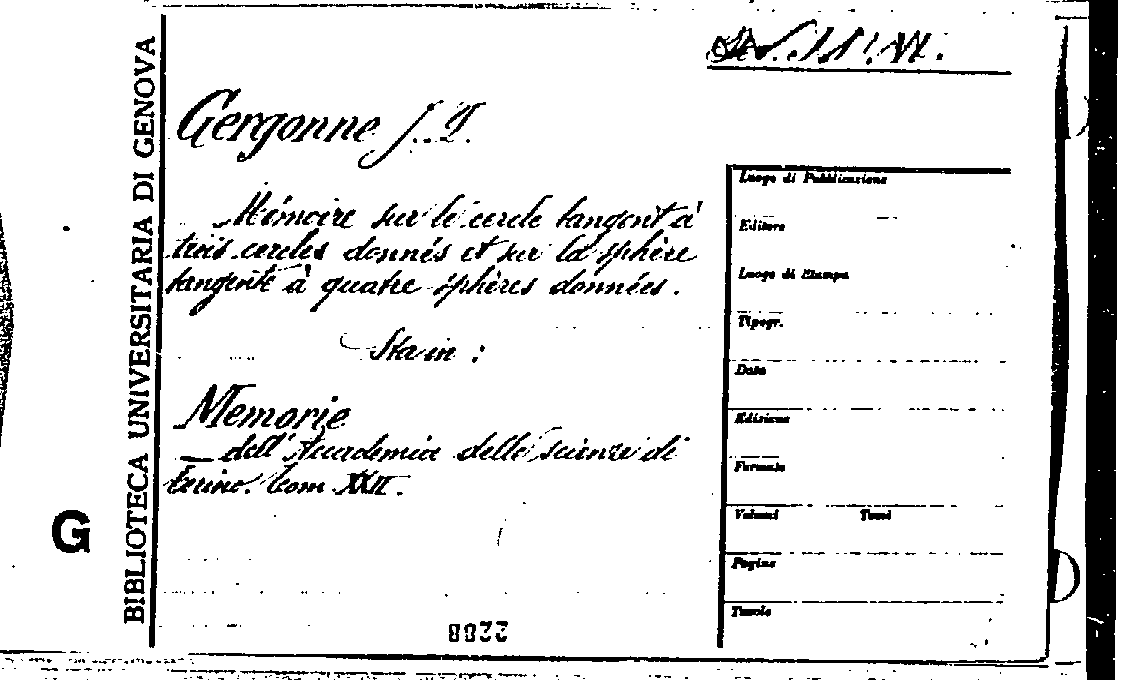 BIBLIOTECA UNIVERSITARIA DI GENOVA
G
Gergonne J. D.
Mémoire sur le cercle tangent à
trois cercles donnés et sur la sphère
tangente à quatre sphères données.
Sta in :
Memorie
dell'Accademia delle scienze di
Torino. Tom XXII.
Luogo di Pubblicazione
Editore
Luogo di Stampa
Tipogr.
Data
Edizione
Formato
Volumi Tomi
Pagine
Tavole